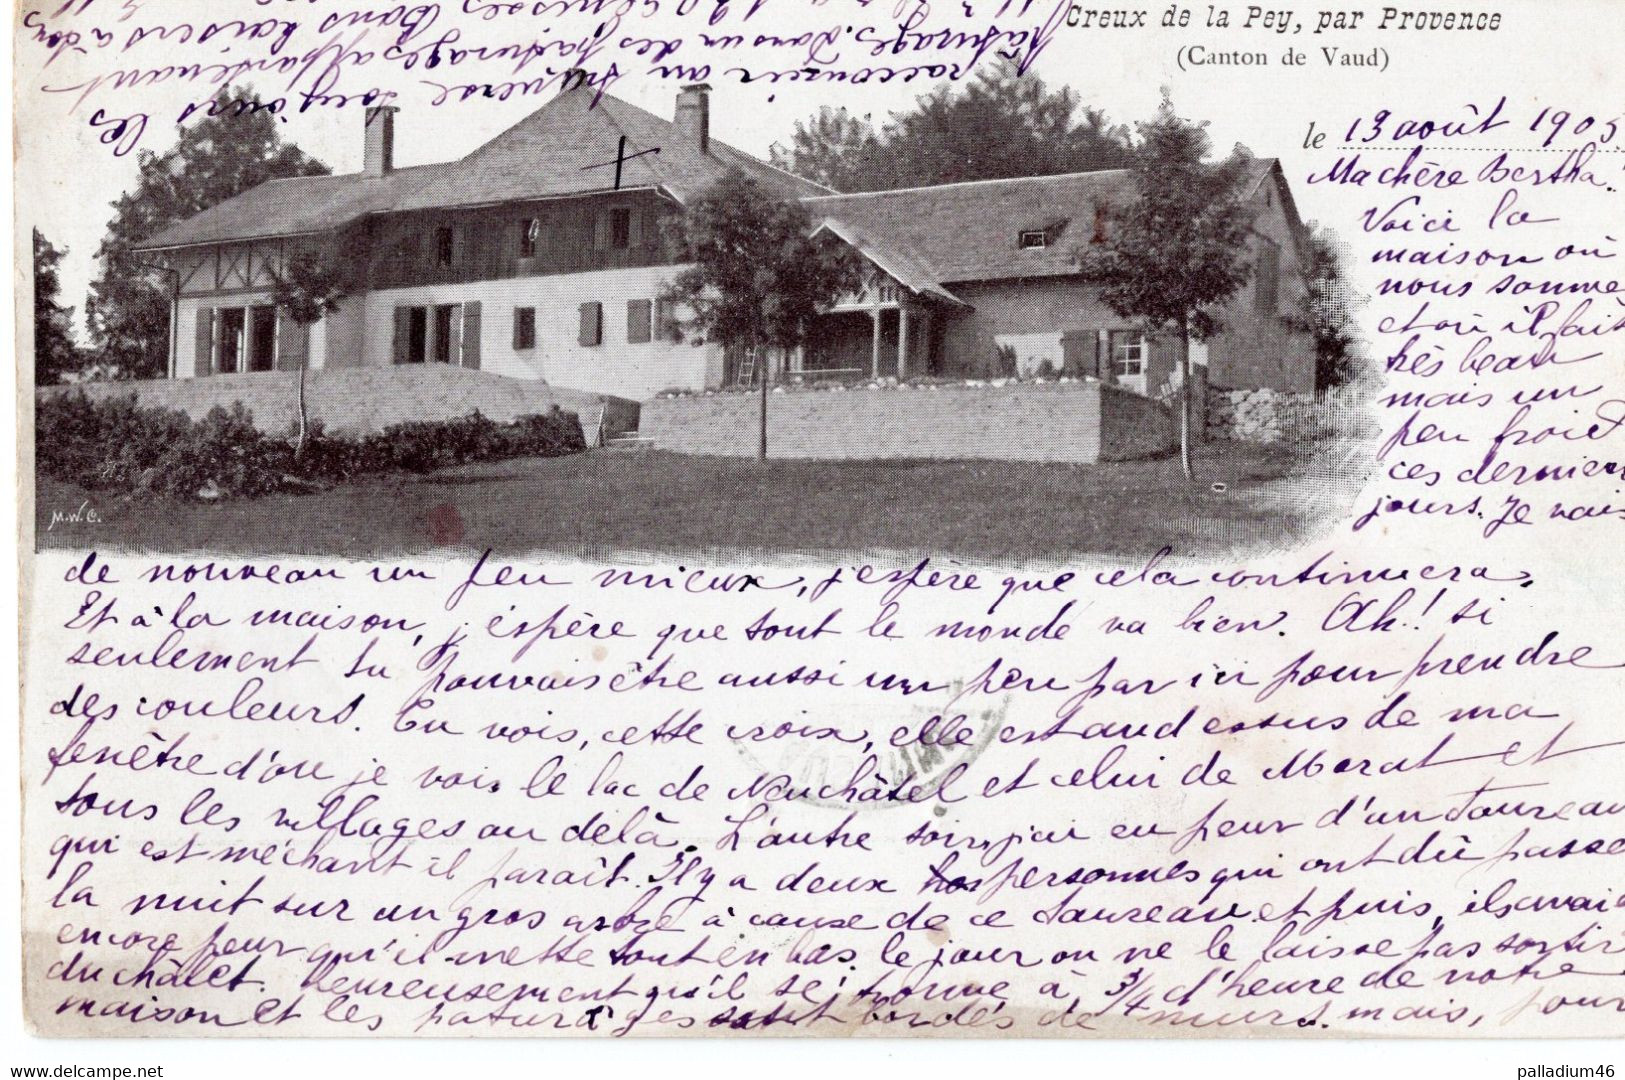 Creux de la Pey, par Provence
(Canton de Vaud)
le 13 août 1905.
Ma chère Bertha!
Voici la
maison où
nous somme
et où il fait
très beau
mais un
peu froid
ces dernier
jours. Je vais
de nouveau un peu mieux, j'espère que cela continuera.
Et à la maison, j'espère que tout le monde va bien. Ah! si
seulement tu pouvais être aussi un peu par ici pour prendre
des couleurs. Tu vois, cette croix, elle est au dessus de ma
fenêtre d'où je vois le lac de Neuchâtel et celui de Morat et
tous les villages au delà. L'autre soir, j'ai eu peur d'un taureau
qui est méchant il paraît. Il y a deux personnes qui ont dû passe
la nuit sur un gros arbre à cause de ce taureau et puis, ils avaie
encore peur qu'il mette tout en bas. le jour on ne le laisse pas sortir
du châlet. heureusement qu'il se trouve à 3/4 d'heure de notre
maison et les paturages sont bordés de murs. mais, pour
raccourcir on traverse toujours les
pâturages. Dans un des pâturages appartenant
M.W.C.
palladium46